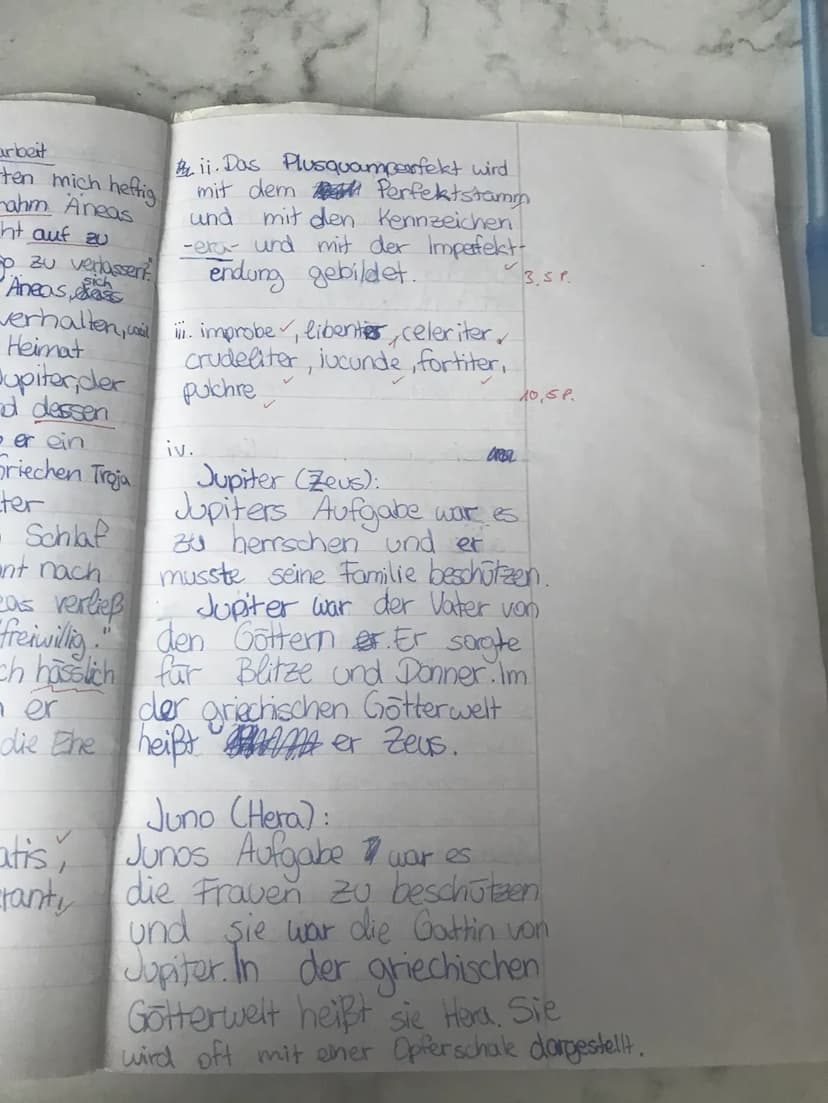 arbeit
ten mich heftig
nahm Äneas
ht auf zu
go zu verlassen."
sich
Äneas,
verhalten, weil
Heimat
Jupiter, der
nd dessen
er ein
Griechen Troja
ter
Schlaf
nt nach
eas verließ
freiwillig."
ch hässlich
er
die Ehe
atis,
rant,
ii. Das Plusquamperfekt wird
mit dem Perfektstamm
und mit den Kennzeichen
-era- und mit der Imperfekt-
endung gebildet.
3,5P.
iii. improbe, libenter, celeriter,
crudeliter, iucunde, fortiter,
pulchre
10,5P.
iv.
Jupiter (Zeus):
Jupiters Aufgabe war es
zu herrschen und er
musste seine Familie beschützen.
Jupiter war der Vater von
den Göttern. Er sorgte
für Blitze und Donner. Im
der griechischen Götterwelt
heißt er Zeus.
Juno (Hera):
Junos Aufgabe war es
die Frauen zu beschützen
und sie war die Gattin von
Jupiter. In der griechischen
Götterwelt heißt sie Hera. Sie
wird oft mit einer Opferschale dargestellt.